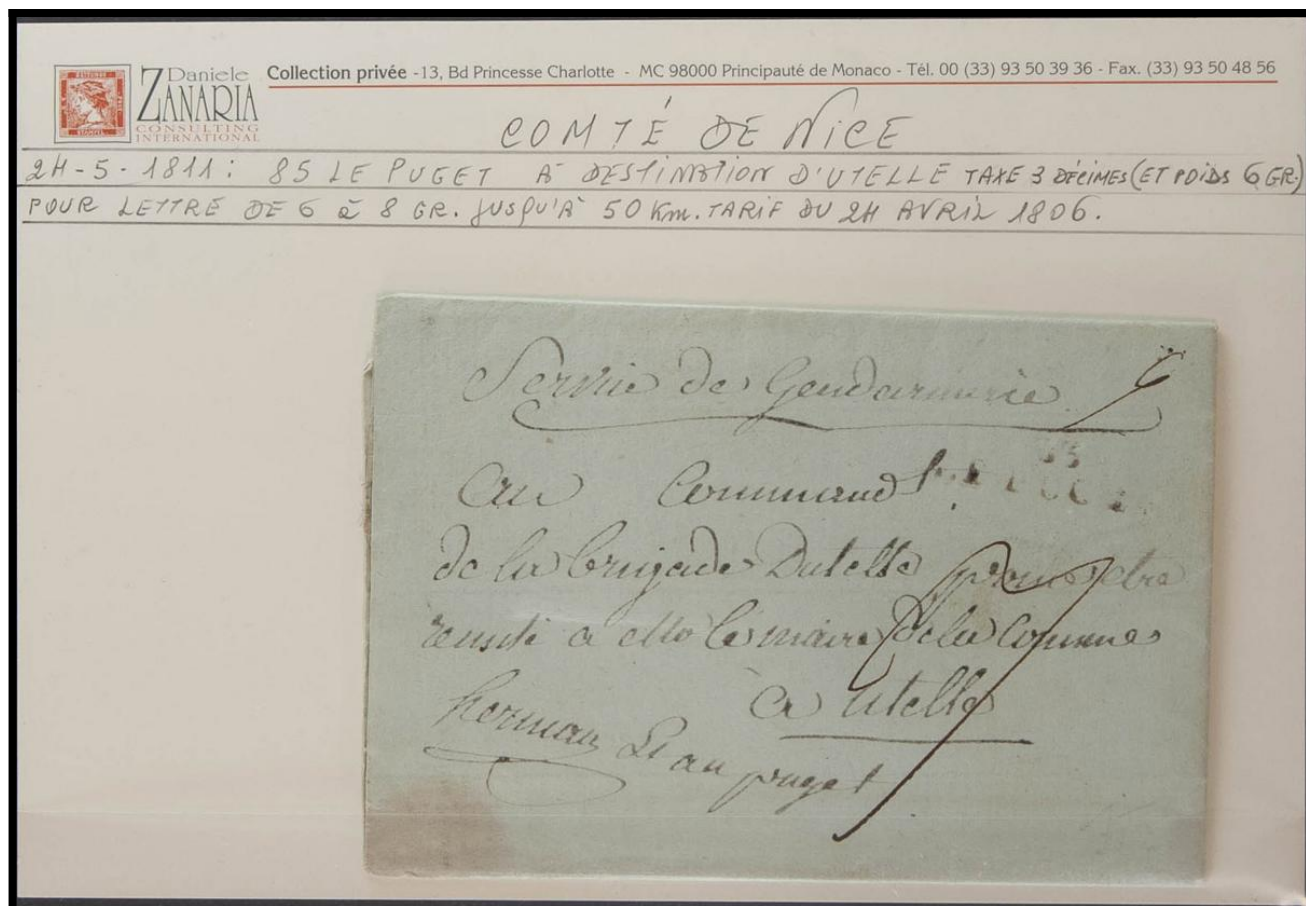 Daniele
ZANARIA
CONSULTING
INTERNATIONAL
Collection privée - 13, Bd Princesse Charlotte - MC 98000 Principauté de Monaco - Tél. 00 (33) 93 50 39 36 - Fax. (33) 93 50 48 56
COMTÉ DE NICE
24-5-1811: 85 LE PUGET A DESTINATION D'UTELLE TAXE 3 DÉCIMES (ET POIDS 6 GR.)
POUR LETTRE DE 6 à 8 GR. JUSQU'À 50 Km. TARIF DU 24 AVRIL 1806.
Service de Gendarmerie 6
85
Au Commandt.
de la brigade Dutelle pour etre
remise a Mr le maire de la Commune
à Utelle
herman Lt au puget